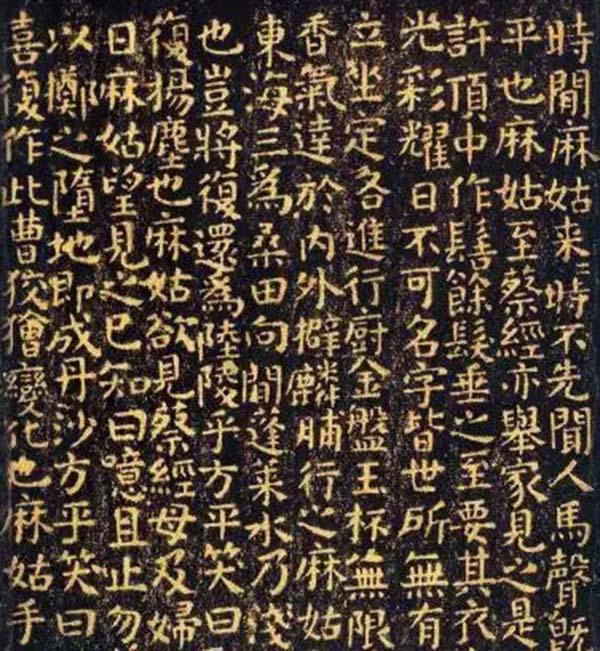 時間麻姑来〻時不先聞人馬聲既
平也麻姑至蔡經亦舉家見之是
許頂中作髻餘髮垂之至要其衣
光彩耀日不可名字皆世所無有
立坐定各進行廚金盤玉杯無限
香氣達於内外擗麟脯行之麻姑
東海三為桑田向間蓬萊水乃淺
也豈將復還為陸陵乎方平笑曰
復揚塵也麻姑欲見蔡經母及婦
日麻姑望見之已知曰噫且止勿
以擲之墮地即成丹沙方平笑曰
喜復作此曹狡獪變化也麻姑手